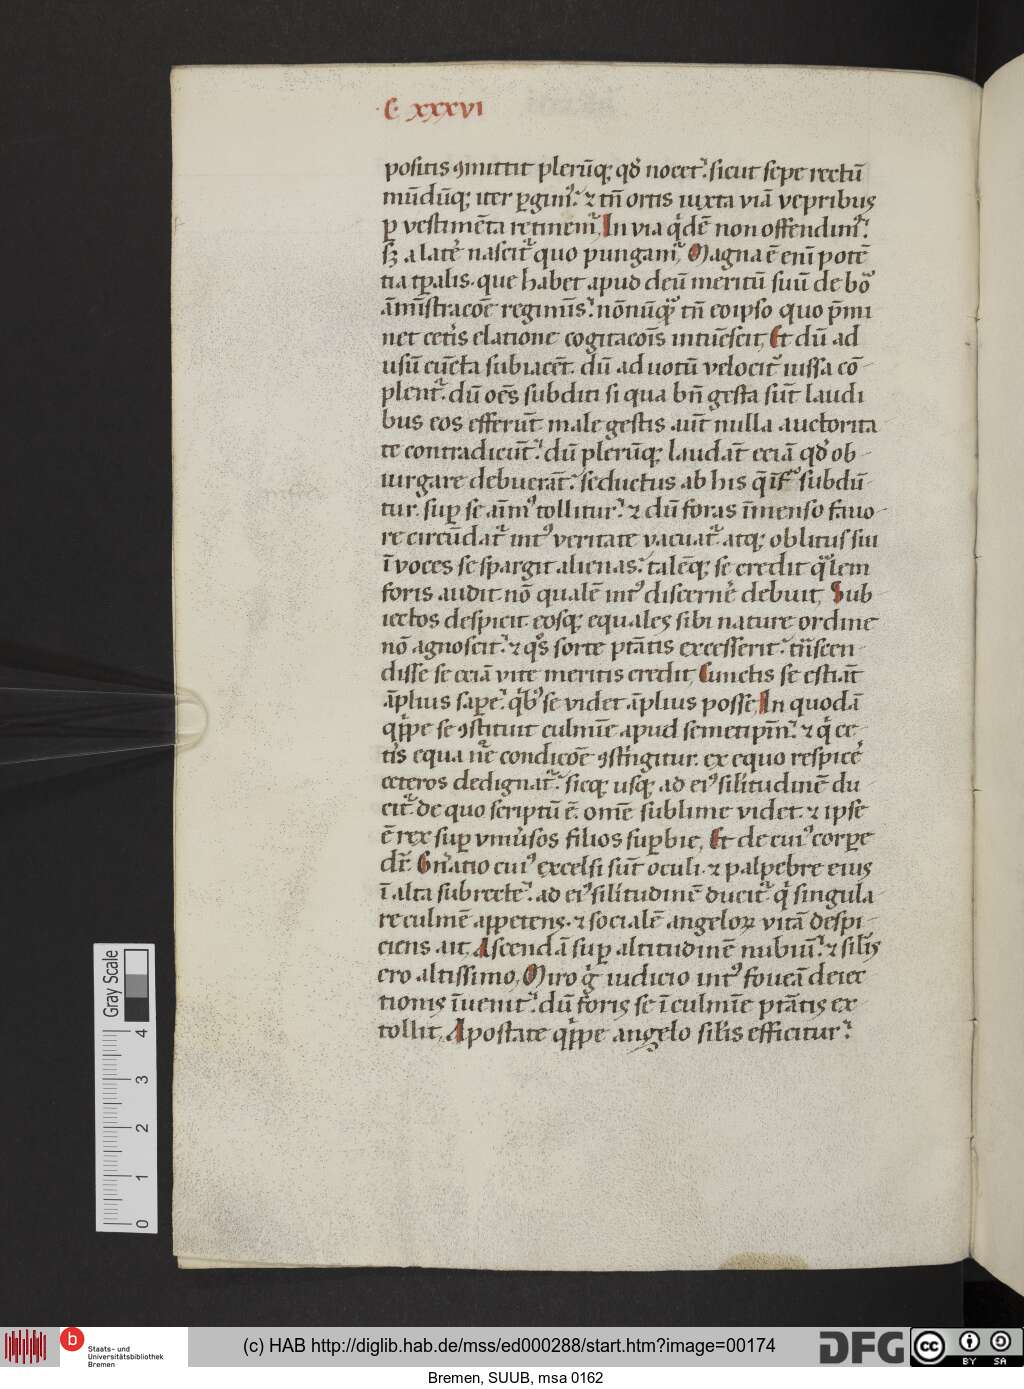 C xxxvi
positis ꝯmittit plerūq; qđ nocet. sicut sepe rectū
mūdūq; iter ꝑgim᷒. ⁊ tn̄ ortis iuxta viā vepribus
ꝑ vestimēta retinemr᷑. In via qͥdē non offendim᷒.
sꝫ a late nascitr᷑ quo pungamr᷑. Magna ē eni potē
tia tꝑalis. que habet apud deū meritū suū de bo
āmīstracōe regiminis. nōnūqͣ tn̄ eo ipso quo p̄mi
net cetis elatione cogitacōis intuēscit. Et dū ad
usū cūcta subiacēt. dū ad uotū velocitr᷑ iussa cō
plentr᷑. dū oēs subditi si qua bn̄ gesta sūt laudi
bus eos efferūt male gestis aūt nulla auctorita
te contradicūt. dū plerūq; laudāt eciā qđ ob
iurgare debuerāt. seductus ab his q̄ īfͣ subdū
tur. suꝑ se aīm᷒ tollitur. ⁊ dū foras īmenso fauo
re circūdatr᷑ int᷒ veritate vacuatr᷑. atq; oblitus sui
ī voces se spargit alienas. talēq; se credit qͣlem
foris audit nō qualē int᷒ discerne debuit. Sub
iectos despicit eosq; equales sibi nature ordine
nō agnoscit. ⁊ qͦs sorte ptātis excesserit. trāscen
disse se eciā vite meritis credit. Cunctis se estiāt
āplius saꝑe. qͥb᷒ se videt āplius posse. In quodā
qͥppe se ꝯstituit culmīe apud semetipm̄. ⁊ qͥ ce
tis equa nr̄e condicōe ꝯstⁱngitur. ex equo respice
ceteros dedignatr᷑. sicq; usq; ad ei᷒ silitudinē du
citr᷑ de quo scriptū ē. om̄e sublime videt. ⁊ ipse
ē rex suꝑ vniuersos filios suꝑbie. Et de cui᷒ corꝑe
dr̄. Gn̄atio cui᷒ excelsi sūt oculi. ⁊ palpebre eius
ī alta subrecte. ad ei᷒ silitudinē ducitr᷑ qͥ singula
re culmē appetens. ⁊ socialē angeloꝝ vitā despi
ciens ait. Ascendā suꝑ altitudinē nubiū. ⁊ silis
ero altissimo. Miro gͦ iudicio int᷒ foueā deiec
tionis īuenit. dū foris se ī culmīe ptātis ex
tollit. Apostate qͥppe angelo silis efficitur.
Gray Scale
4
3
2
1
0
b
Staats- und
Universitätsbibliothek
Bremen
(c) HAB http://diglib.hab.de/mss/ed000288/start.htm?image=00174
DFG
cc
BY SA
Bremen, SUUB, msa 0162